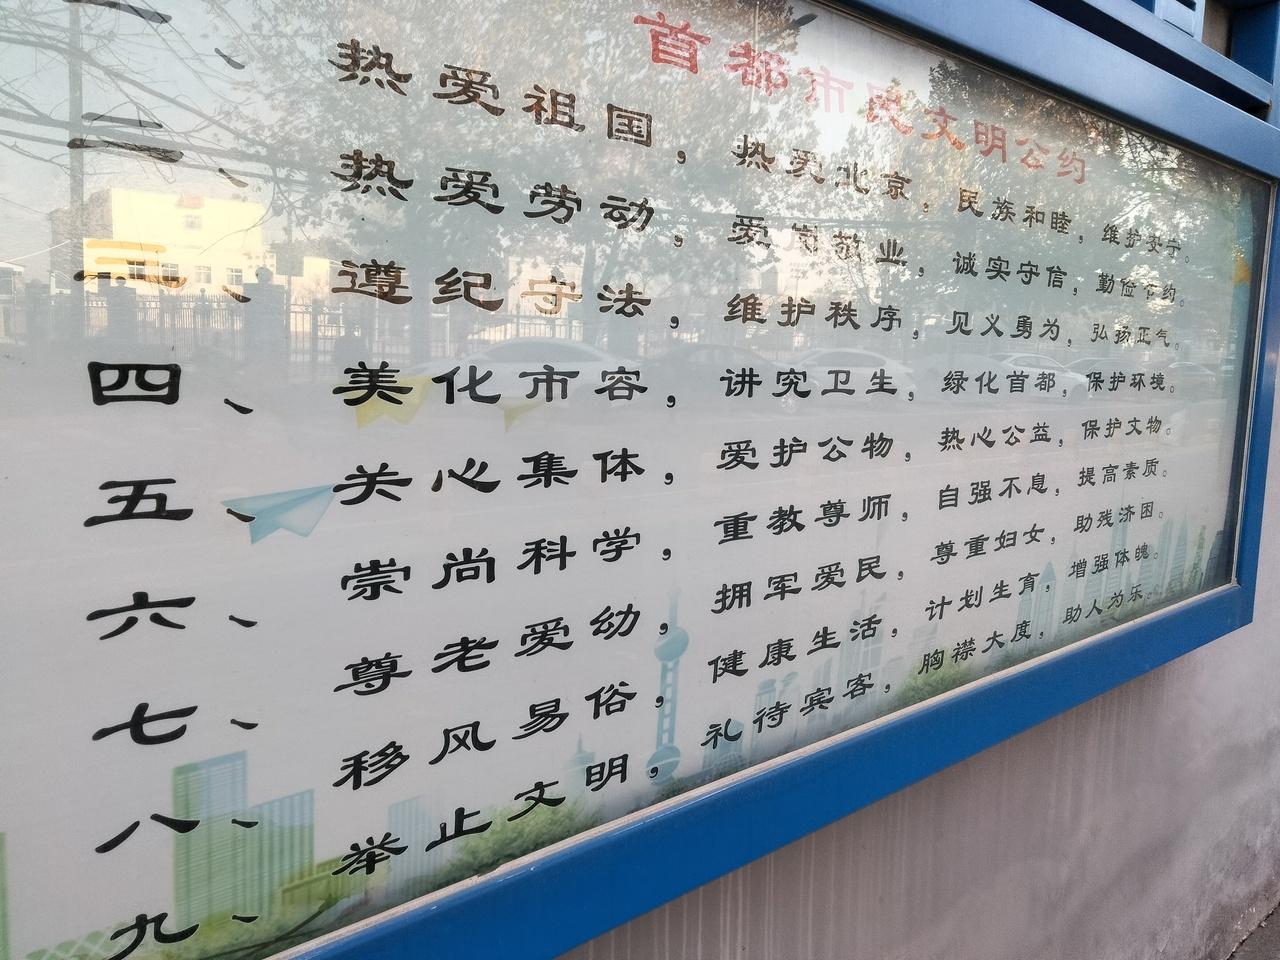 首都市民文明公约
一、热爱祖国，热爱北京，民族和睦，维护安宁。
二、热爱劳动，爱岗敬业，诚实守信，勤俭节约。
三、遵纪守法，维护秩序，见义勇为，弘扬正气。
四、美化市容，讲究卫生，绿化首都，保护环境。
五、关心集体，爱护公物，热心公益，保护文物。
六、崇尚科学，重教尊师，自强不息，提高素质。
七、尊老爱幼，拥军爱民，尊重妇女，助残济困。
八、移风易俗，健康生活，计划生育，增强体魄。
九、举止文明，礼待宾客，胸襟大度，助人为乐。